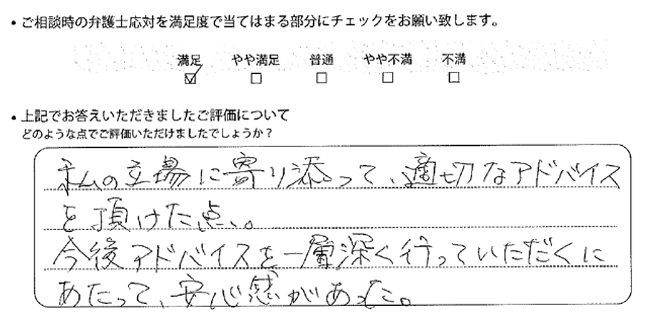 ・ご相談時の弁護士応対を満足度で当てはまる部分にチェックをお願い致します。
満足 やや満足 普通 やや不満 不満
☑ □ □ □ □
・上記でお答えいただきましたご評価について
どのような点でご評価いただけましたでしょうか？
私の立場に寄り添って、適切なアドバイス
を頂けた点。
今後アドバイスを一層深く行っていただくに
あたって、安心感があった。